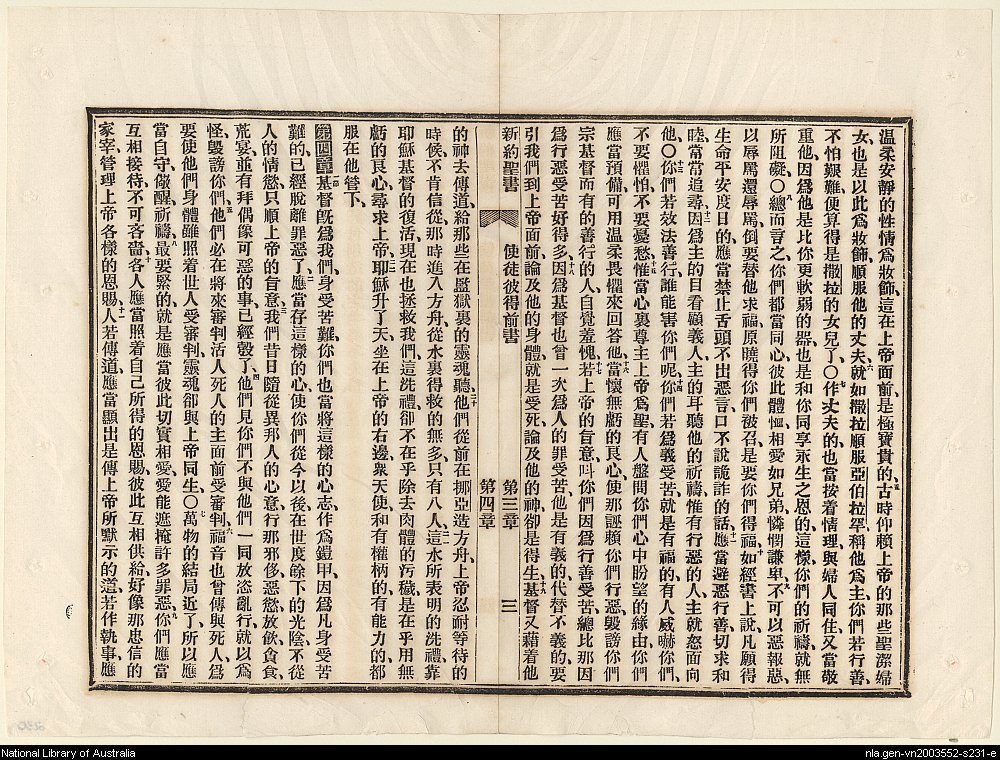 温柔安靜的性情爲妝飾、這在上帝面前、是極寶貴的、五古時仰賴上帝的那些聖潔婦
女、也是以此爲妝飾、順服他的丈夫、六就如撒拉順服亞伯拉罕、稱他爲主、你們若行善、
不怕艱難、便算得是撒拉的女兒了、〇七作丈夫的、也當按着情理與婦人同住、又當敬
重他、因爲他是比你更軟弱的器、也是和你同享永生之恩的、這樣、你們的祈禱就無
所阻礙、〇八總而言之、你們都當同心、彼此體恤、相愛如兄弟、憐憫謙卑、九不可以惡報惡、
以辱罵還辱罵、倒要替他求福、原曉得你們被召、是要你們得福、十如經書上說、凡願得
生命平安度日的、應當禁止舌頭不出惡言、口不說詭詐的話、十一應當避惡行善、切求和
睦、當當追尋、十二因爲主的目看顧義人、主的耳聽他的祈禱、惟有行惡的人、主就怒面向
他、〇十三你們若效法善行、誰能害你們呢、十四你們若爲義受苦、就是有福的、有人威嚇你們、
不要懼怕、不要憂愁、十五惟當心裏尊主上帝爲聖、有人盤問你們心中盼望的緣由、你們
應當預備、可用温柔畏懼來回答他、十六當懷無虧的良心、使那誣賴你們行惡、毀謗你們
宗基督而有的善行的人、自覺羞愧、十七若上帝的旨意、叫你們因爲行善受苦、總比那因
爲行惡受苦好得多、十八因爲基督也曾一次爲人的罪受苦、他是有義的、代替不義的、要
引我們到上帝面前、論及他的身體、就是受死、論及他的神、卻是得生、十九基督又藉着他
新約聖書 使徒彼得前書 第三章 第四章 三
的神、去傳道給那些在監獄裏的靈魂聽、二十他們從前在挪亞造方舟、上帝忍耐等待的
時候、不肯信從、那時進入方舟、從水裏得救的無多、只有八人、二一這水所表明的洗禮、靠
耶穌基督的復活、現在也拯救我們、這洗禮卻不在乎除去肉體的污穢、是在乎用無
虧的良心尋求上帝、二二耶穌升了天、坐在上帝的右邊、衆天使和有權柄的、有能力的、都
服在他管下、
第四章一基督旣爲我們身受苦難、你們也當將這樣的心志作爲鎧甲、因爲凡身受苦
難的、已經脫離罪惡了、二應當存這樣的心、使你們從今以後、在世度餘下的光陰、不從
人的情慾、只順上帝的旨意、三我們昔日隨從異邦人的心意、行那邪侈、惡慾、放飲、貪食、
荒宴、並有拜偶像可惡的事、已經彀了、四他們見你們不與他們一同放恣亂行、就以爲
怪、毀謗你們、五他們必在將來審判活人死人的主面前受審判、六福音也曾傳與死人、爲
要使他們身體雖照着世人受審判、靈魂卻與上帝同生、〇七萬物的結局近了、所以應
當自守、儆醒祈禱、八最要緊的就是應當彼此切實相愛、愛能遮掩許多罪惡、九你們應當
互相接待、不可吝嗇、十各人應當照着自己所得的恩賜、彼此互相供給、好像那忠信的
家宰、管理上帝各樣的恩賜、十一人若傳道、應當顯出是傳上帝所默示的道、若作執事、應
National Library of Australia
nla.gen-vn2003552-s231-e